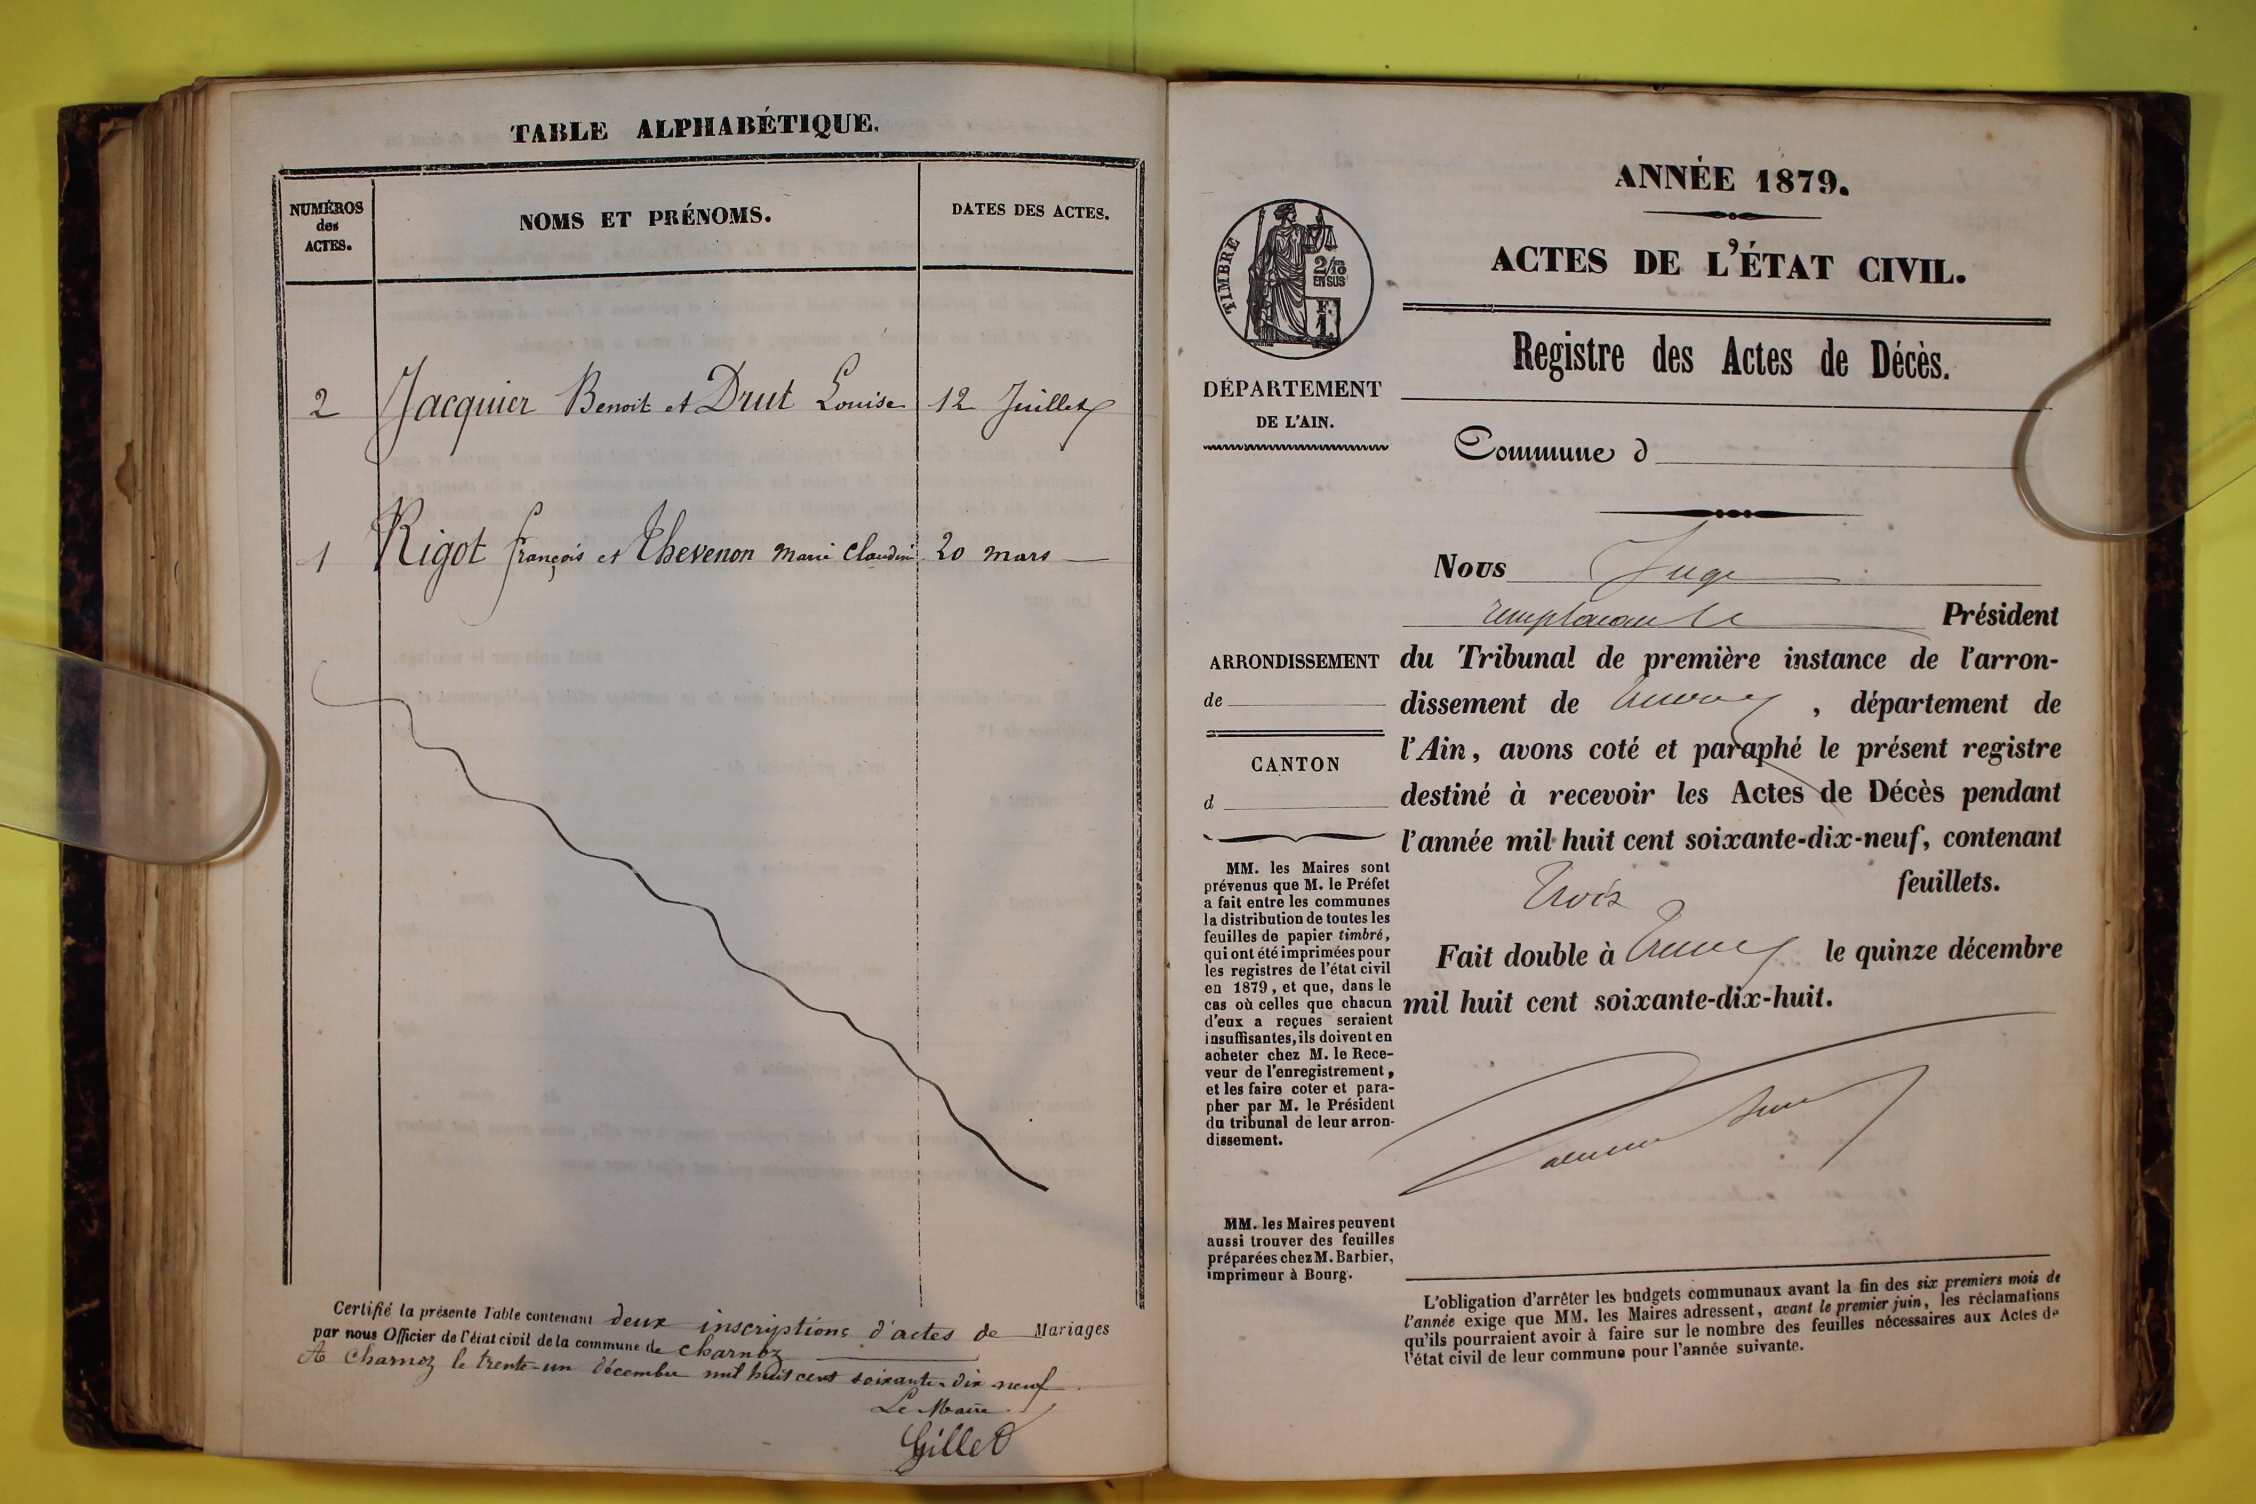 TABLE ALPHABÉTIQUE.
NUMÉROS
des
ACTES.
NOMS ET PRÉNOMS.
DATES DES ACTES.
2 Jacquier Benoit et Drut Louise 12 Juillet
1 Rigot françois et Thevenon marie claudine 20 mars
Certifié la présente Table contenant deux inscriptions d'actes de Mariages
par nous Officier de l'état civil de la commune de charnoz
A Charnoz le trente-un décembre mil huit cent soixante-dix neuf
Le Maire
Gillet
ANNÉE 1879.
ACTES DE L'ÉTAT CIVIL.
Registre des Actes de Décès.
TIMBRE
2/10
EN SUS
DÉPARTEMENT
DE L'AIN.
Commune d
Nous Juge
remplaçant le Président
ARRONDISSEMENT
de
CANTON
d
du Tribunal de première instance de l'arron-
dissement de Trévoux, département de
l'Ain, avons coté et paraphé le présent registre
destiné à recevoir les Actes de Décès pendant
l'année mil huit cent soixante-dix-neuf, contenant
trois feuillets.
Fait double à Trévoux le quinze décembre
mil huit cent soixante-dix-huit.
MM. les Maires sont
prévenus que M. le Préfet
a fait entre les communes
la distribution de toutes les
feuilles de papier timbré,
qui ont été imprimées pour
les registres de l'état civil
en 1879, et que, dans le
cas où celles que chacun
d'eux a reçues seraient
insuffisantes, ils doivent en
acheter chez M. le Rece-
veur de l'enregistrement,
et les faire coter et para-
pher par M. le Président
du tribunal de leur arron-
dissement.
MM. les Maires peuvent
aussi trouver des feuilles
préparées chez M. Barbier,
imprimeur à Bourg.
L'obligation d'arrêter les budgets communaux avant la fin des six premiers mois de
l'année exige que MM. les Maires adressent, avant le premier juin, les réclamations
qu'ils pourraient avoir à faire sur le nombre des feuilles nécessaires aux Actes de
l'état civil de leur commune pour l'année suivante.